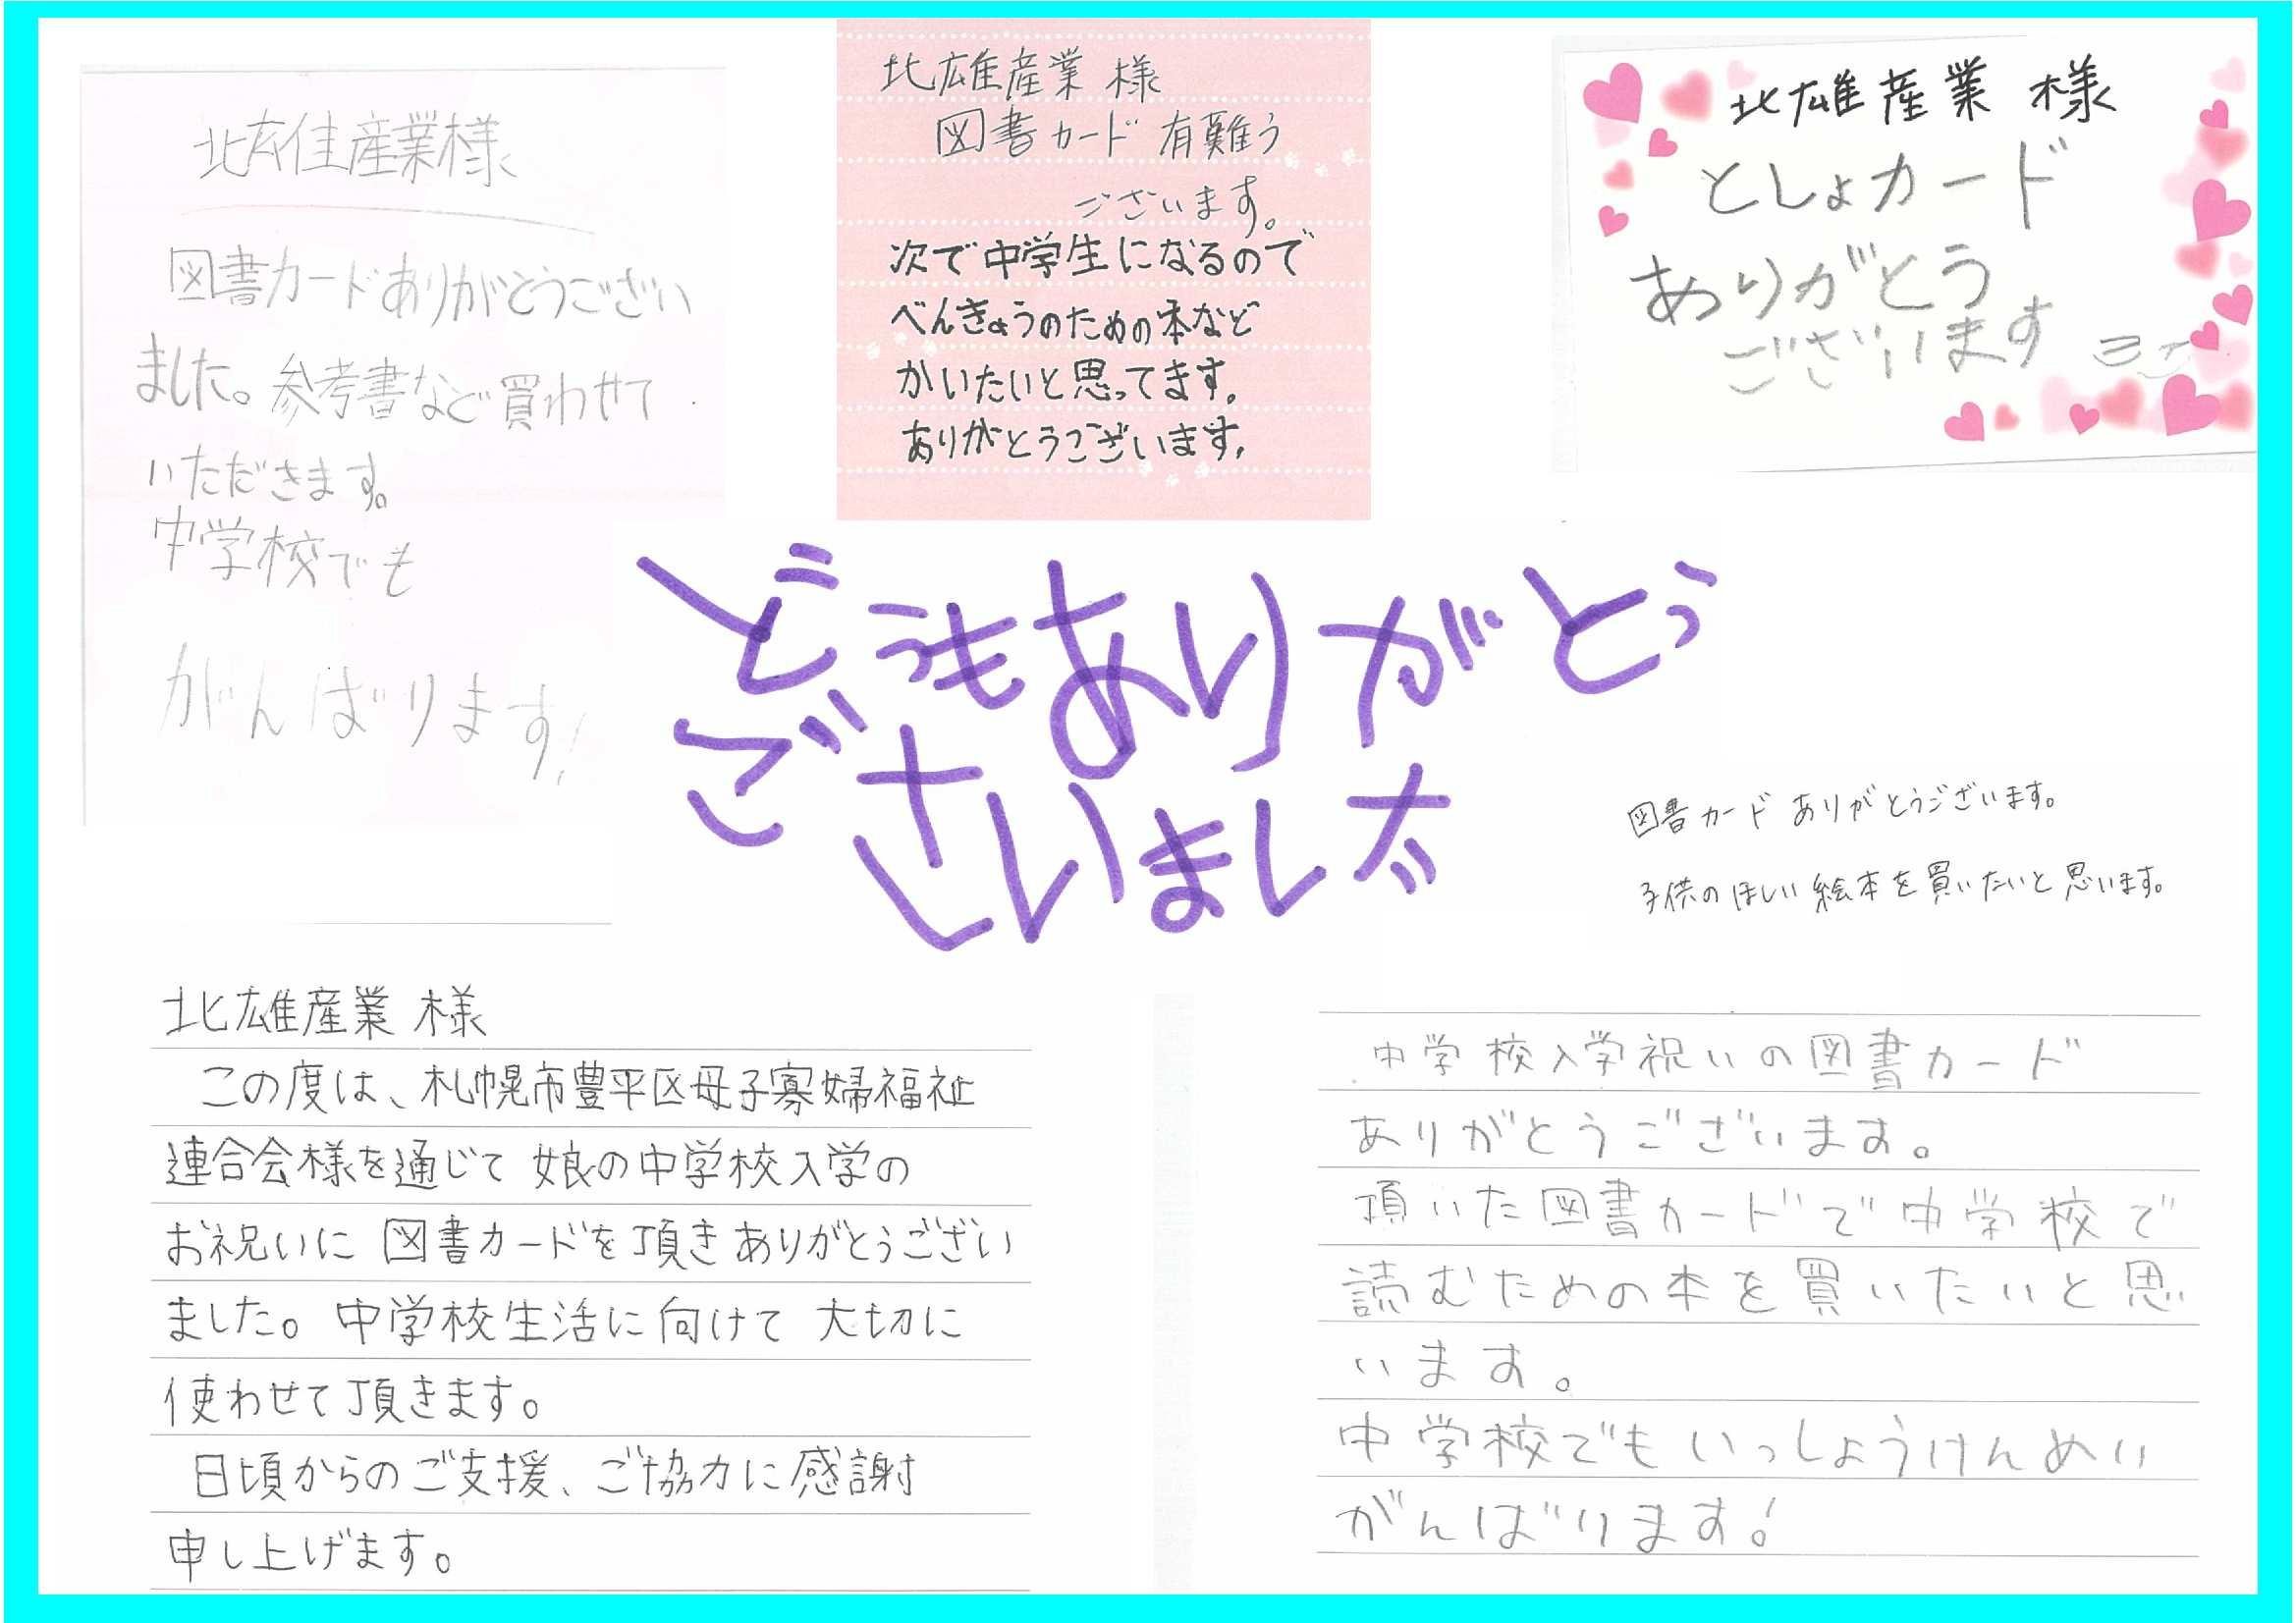 北雄産業様
図書カードありがとうござい
ました。参考書など買わせて
いただきます。
中学校でも
がんばります!
北雄産業 様
図書カード 有難う
ございます。
次で中学生になるので
べんきょうのための本など
かいたいと思ってます。
ありがとうございます。
北雄産業 様
としょカード
ありがとう
ございます
どうもありがとう
ございました
図書カード ありがとうございます。
子供のほしい絵本を買いたいと思います。
北雄産業 様
この度は、札幌市豊平区母子寡婦福祉
連合会様を通じて 娘の中学校入学の
お祝いに 図書カードを頂きありがとうござい
ました。中学校生活に向けて 大切に
使わせて頂きます。
日頃からのご支援、ご協力に感謝
申し上げます。
中学校入学祝いの図書カード
ありがとうございます。
頂いた図書カードで中学校で
読むための本を買いたいと思
います。
中学校でもいっしょうけんめい
がんばります!